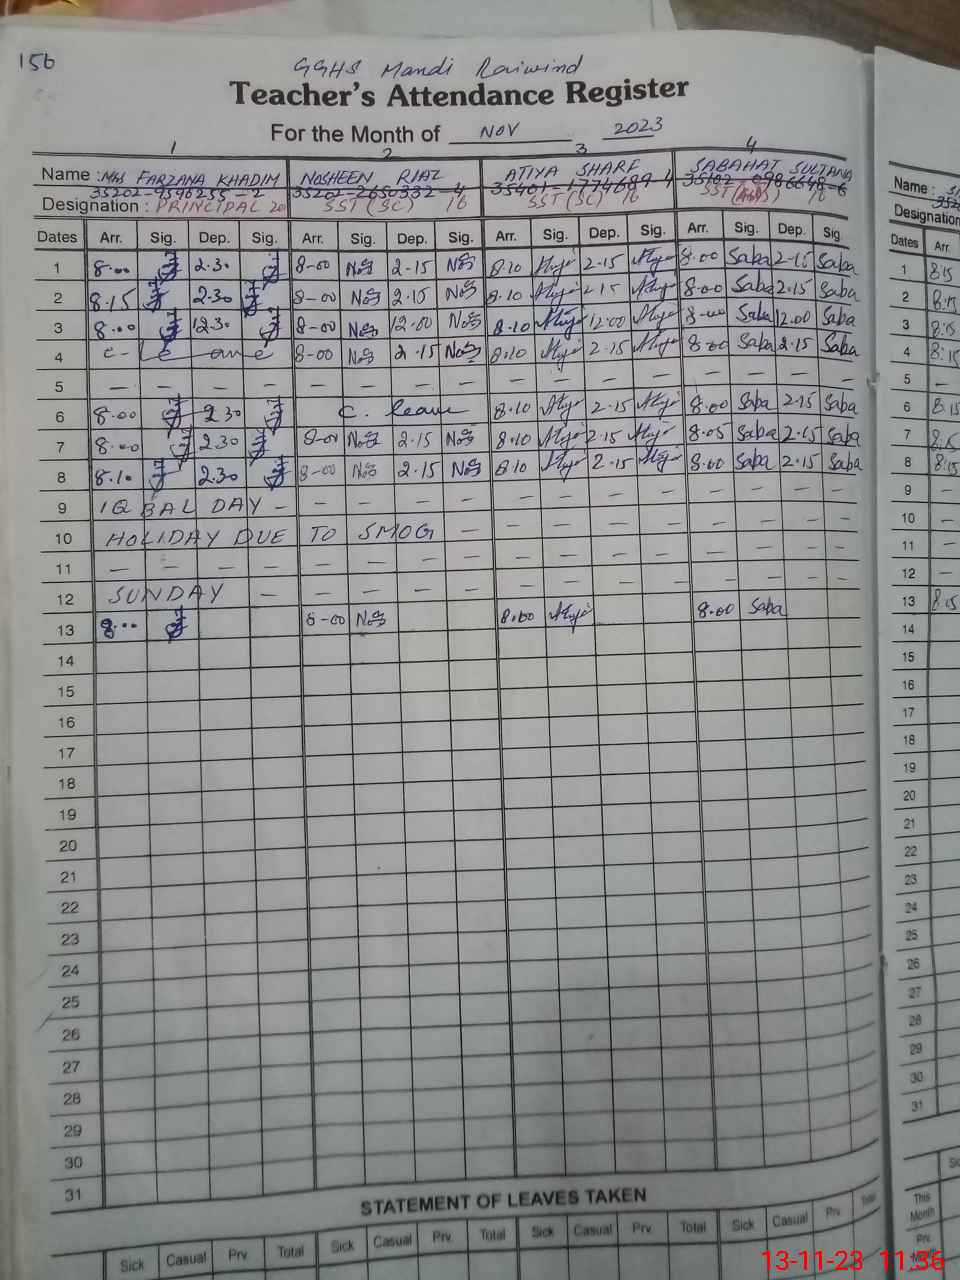 156
GGHS Mandi Raiwind
Teacher's Attendance Register
For the Month of NOV 2023
1 2 3 4
Name : Mrs FARZANA KHADIM NOSHEEN RIAZ ATIYA SHARF SABAHAT SULTANA Name :
Designation : PRINCIPAL 20 SST (SC) 16 SST (SC) 16 SST 16 Designation
Dates Arr. Sig. Dep. Sig. Arr. Sig. Dep. Sig. Arr. Sig. Dep. Sig. Arr. Sig. Dep. Sig. Dates Arr.
1 8.00 2.30 8-00 2.15 8.10 2.15 8.00 Saba 2.15 Saba 1 8:15
2 8.15 2.30 8-00 2.15 8.10 2.15 8.00 Saba 2.15 Saba 2 8:15
3 8.00 12.30 8-00 12.00 8.10 12.00 8.00 Saba 12.00 Saba 3 8:15
4 C- Leave 8-00 2.15 8.10 2.15 8.00 Saba 2.15 Saba 4 8:15
5 — — — — — — — — — — — — — — — — 5 —
6 8.00 2.30 C. leave 8.10 2.15 8.00 Saba 2.15 Saba 6 8:15
7 8.00 2.30 8-00 2.15 8.10 2.15 8.05 Saba 2.15 Saba 7 8:15
8 8.10 2.30 8-00 2.15 8.10 2.15 8.00 Saba 2.15 Saba 8 8:15
9 IQBAL DAY — — — — — — — — — — — — — 9 —
10 HOLIDAY DUE TO SMOG — — — — — — — — — 10 —
11 — — — — — — — — — — — — — — — — 11 —
12 SUNDAY — — — — — — — — — — — — — 12 —
13 8.00 8-00 8.00 8.00 Saba 13 8:15
14 14
15 15
16 16
17 17
18 18
19 19
20 20
21 21
22 22
23 23
24 24
25 25
26 26
27 27
28 28
29 29
30 30
31 31
STATEMENT OF LEAVES TAKEN
Sick Casual Prv. Total Sick Casual Prv. Total Sick Casual Prv. Total Sick Casual Prv. Total This Month
Prv.
13-11-23 11:36